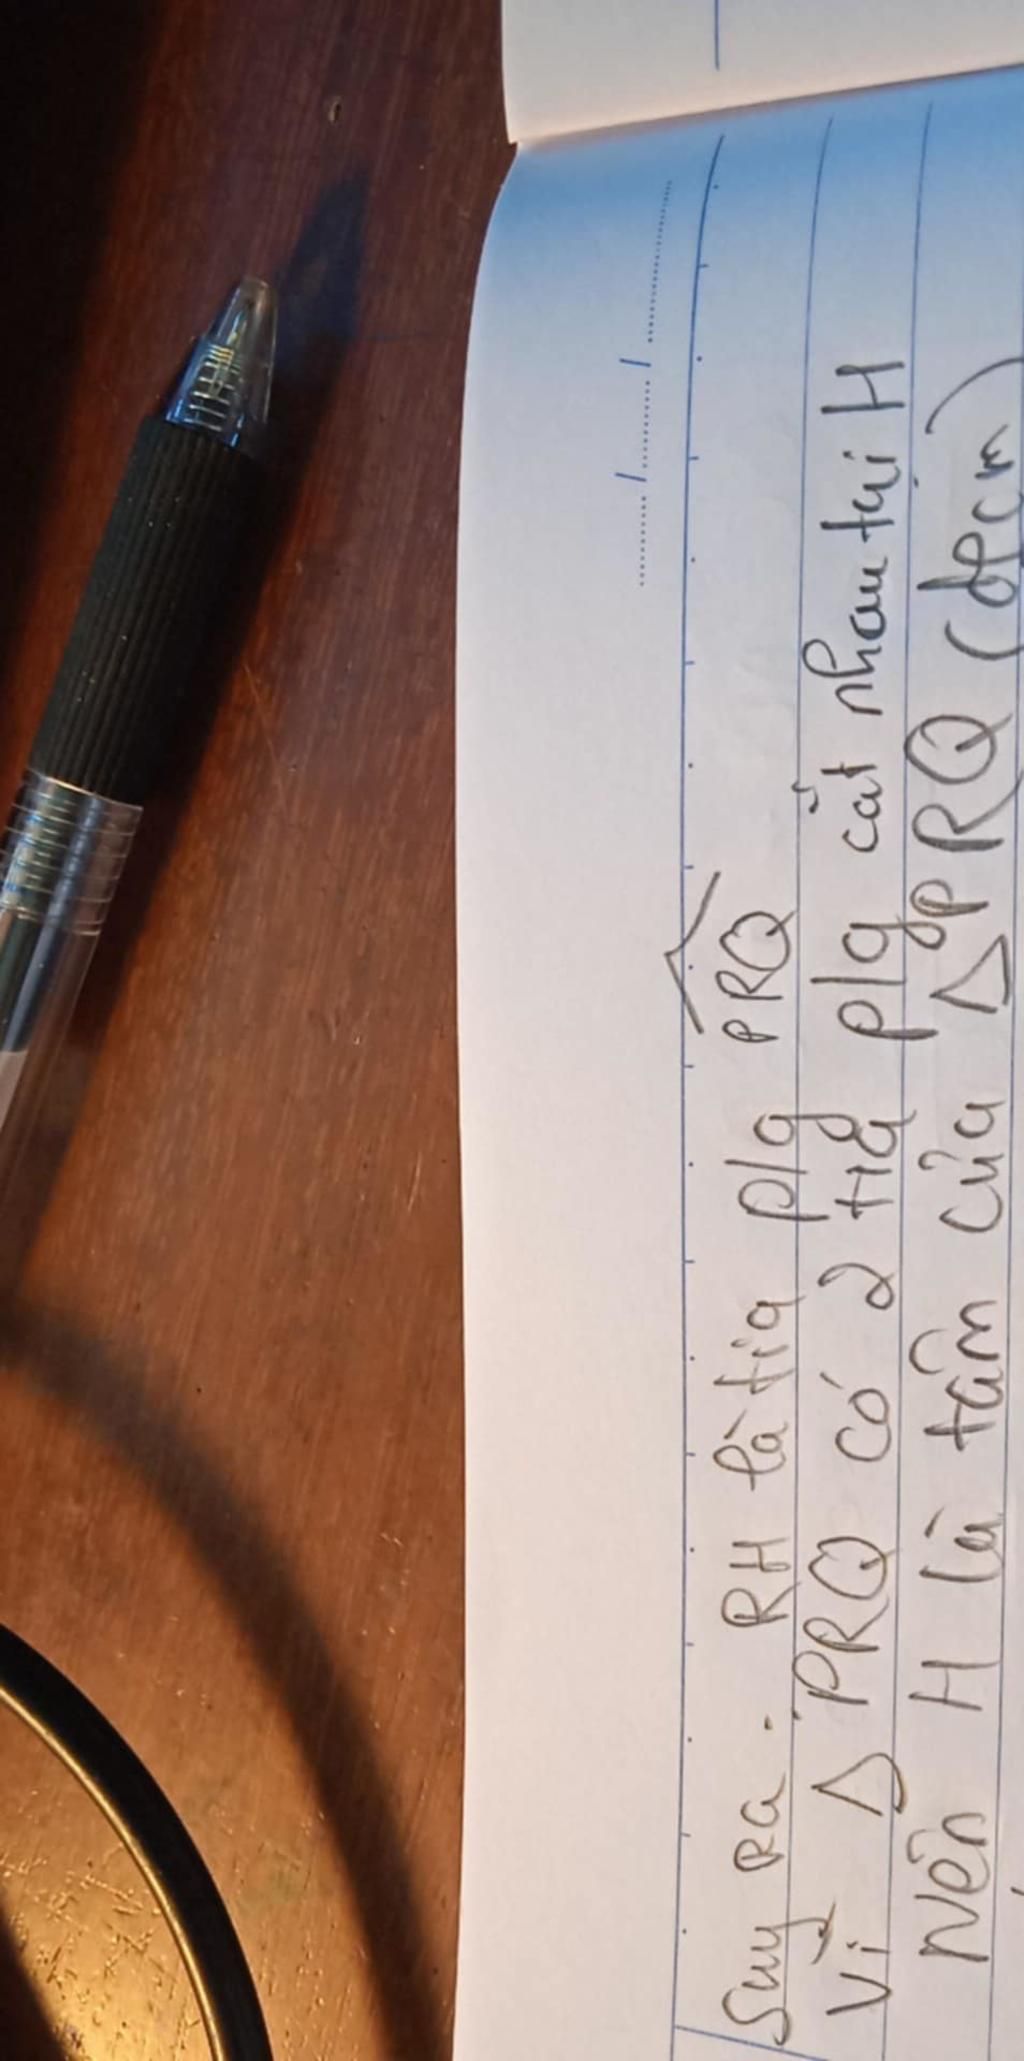 Suy ra. RH là tia p/g PRQ
Vì Δ PRQ có 2 tia p/g cắt nhau tại H
Nên H là tâm của ΔPRQ (đpcm)